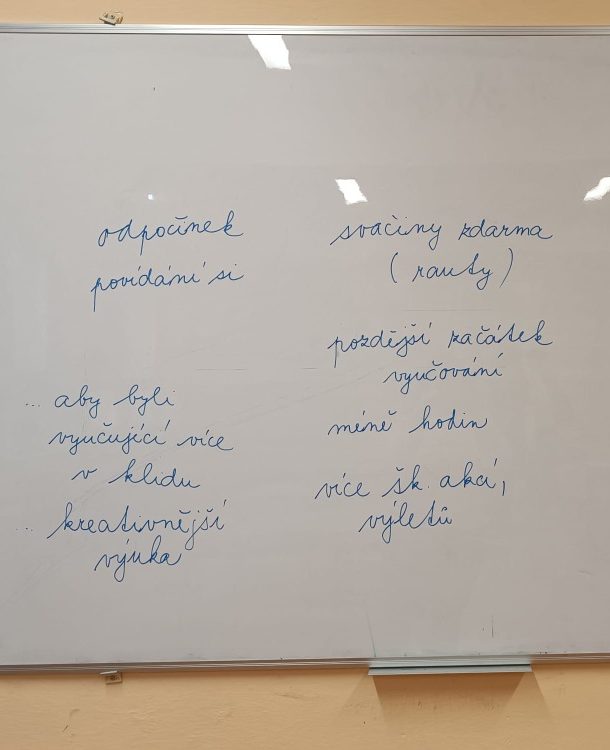 odpočinek
povídání si
... aby byli
vyučující více
v klidu
... kreativnější
výuka
svačiny zdarma
(rauty)
pozdější začátek
vyučování
méně hodin
více šk. akcí,
výletů